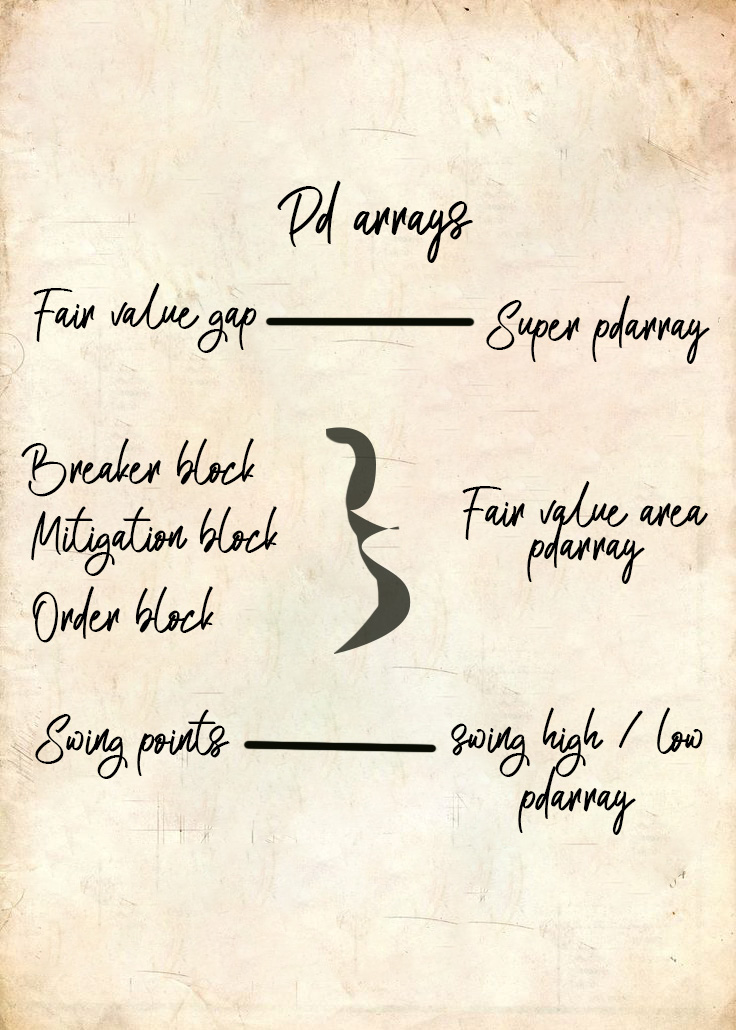 Pd arrays
Fair value gap
Super pdarray
Breaker block
Mitigation block
Order block
Fair value area
pdarray
Swing points
swing high / low
pdarray